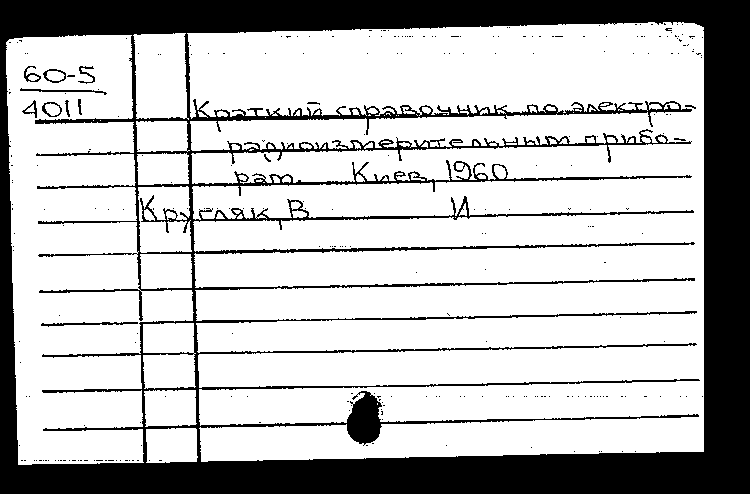 60-5
4011
Краткий справочник по электро-
радиоизмерительным прибо-
рам. Киев, 1960
Кругляк, В И